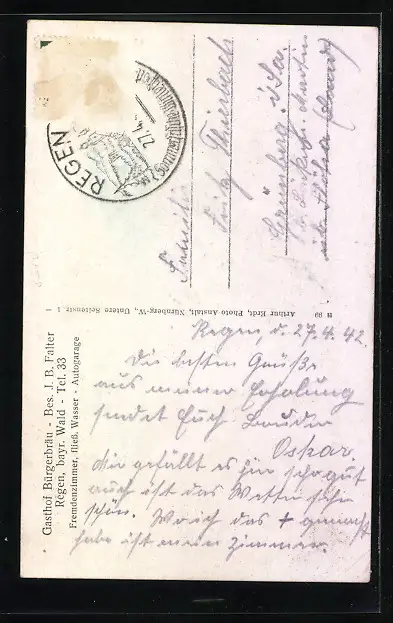 Gasthof Bürgerbräu - Bes. J. B. Falter
Regen, bayr. Wald - Tel. 33
Fremdenzimmer, fließ. Wasser - Autogarage
Arthur Erdt, Photo Anstalt, Nürnberg-W., Untere Seitenstr. 1
H 99
REGEN
27.4.
Familie
Fritz
Grünberg i. Sa.
Regen, d. 27.4.42.
Die besten Grüße
aus meiner Erholung
sendet Euch Bruder
Oskar.
Mir gefällt es hier sehr gut
auch ist das Wetter sehr
schön. Wo ich das + gemacht
habe ist mein Zimmer.